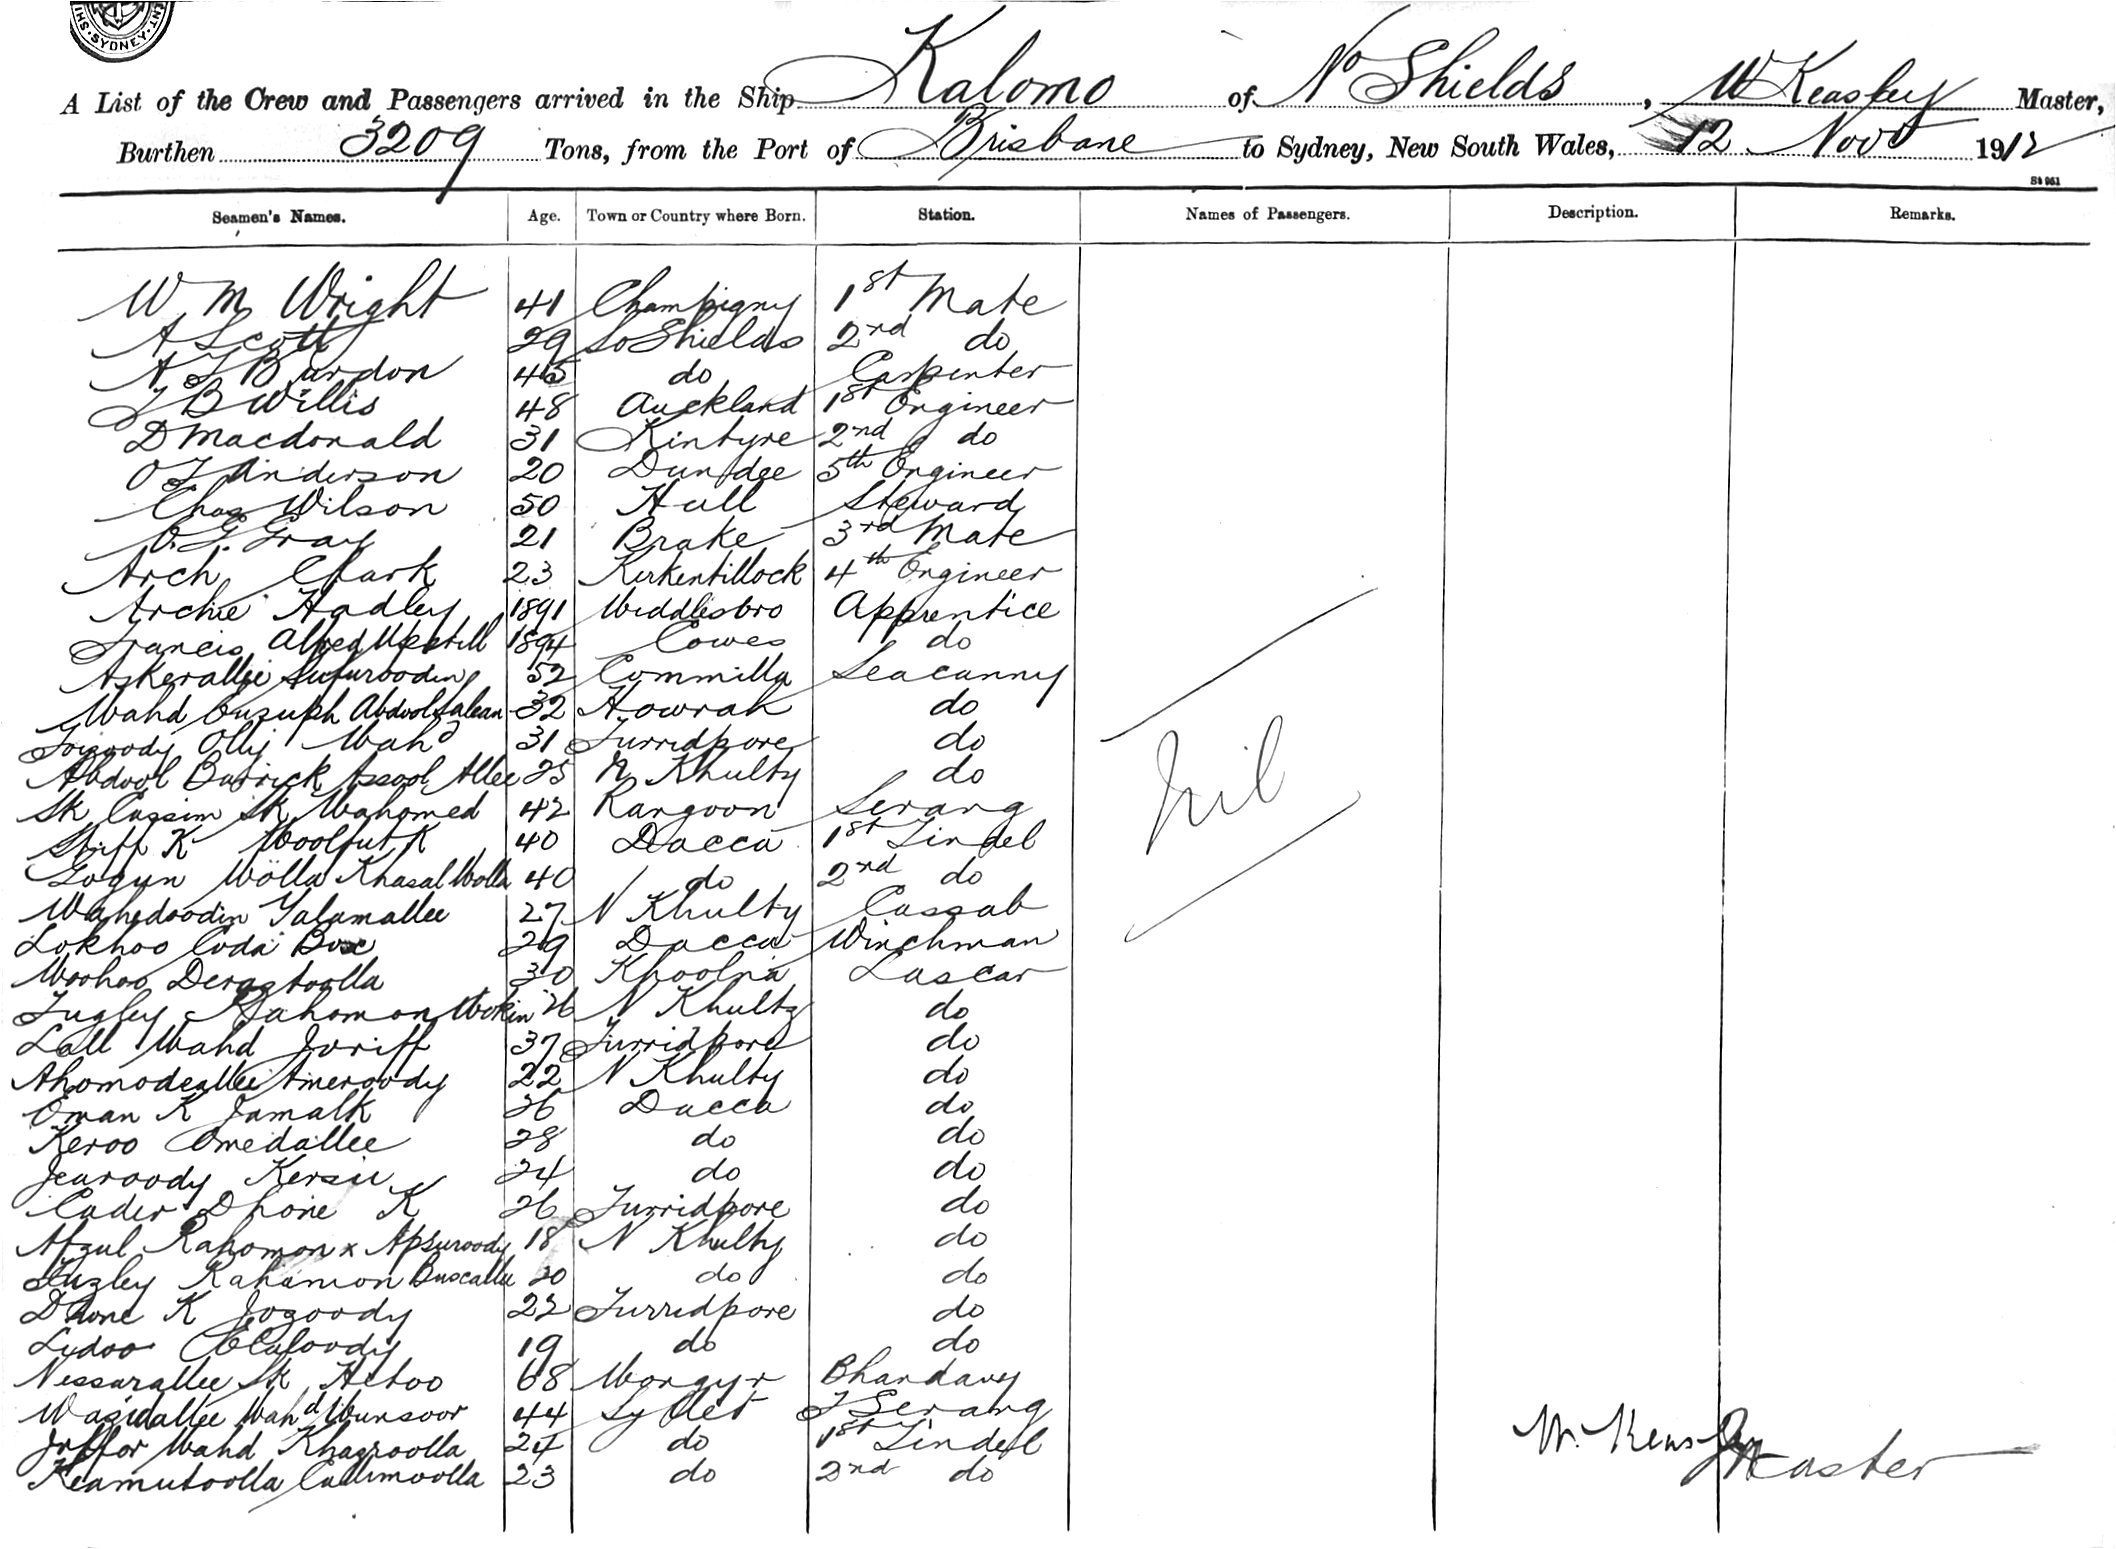 SYDNEY
A List of the Crew and Passengers arrived in the Ship Kalomo of No Shields, W Keasley Master,
Burthen 3209 Tons, from the Port of Brisbane to Sydney, New South Wales, 12 Novr 1912
St 961
Seamen's Names. Age. Town or Country where Born. Station. Names of Passengers. Description. Remarks.
W M Wright 41 Champigny 1st Mate
A Scott 29 So Shields 2nd do
A J Burdon 45 do Carpenter
J B Willis 48 Auckland 1st Engineer
D Macdonald 31 Kintyre 2nd do
O J Anderson 20 Dundee 5th Engineer
Chas Wilson 50 Hull Steward
O. G. Gray 21 Brake 3rd Mate
Arch Clark 23 Kirkentillock 4th Engineer
Archie Hadley 1891 Middlesbro Apprentice
Francis Alfred 1894 Cowes do
Askerallie 52 Commilla Seacunny
Mahd Abdool 32 Howrah do
Olly Mahd 31 Furridpore do
Abdool Burrick Assool Allee 25 N Khulty do
Sk Cassim Sk Mahomed 42 Rangoon Serang
K 40 Dacca 1st Tindel
Gogun Molla Khasal Molla 40 do 2nd do
Wahedoodin Jalamallee 27 N Khulty Cassab
Lokhoo Coda Bux 29 Dacca Winchman
Moohoo Derastoolla 30 Khoolna Lascar
Fugley Rahomon Mokin 26 N Khulty do
Lall Mahd Joriff 37 Furridpore do
Ahomodeallee Ameroody 22 N Khulty do
Oman K Jamalk 26 Dacca do
Keroo Omedallee 28 do do
Jearoody Kersie 24 do do
Cader Dhone K 26 Furridpore do
Afzul Rahomon x Apsuroody 18 N Khulty do
Fuzley Rahamon Buscallee 20 do do
Dhone K Jogoody 22 Furridpore do
Ludoo 19 do do
Nessarallee Sk Hetoo 68 Mongyr Bhandary
Wazidallee Mahd Munsoor 44 Syllet F Serang
Joffor Mahd Khazroolla 24 do 1st Tindel
Keamutoolla Callimoolla 23 do 2nd do
Nil
W. Keasley Master